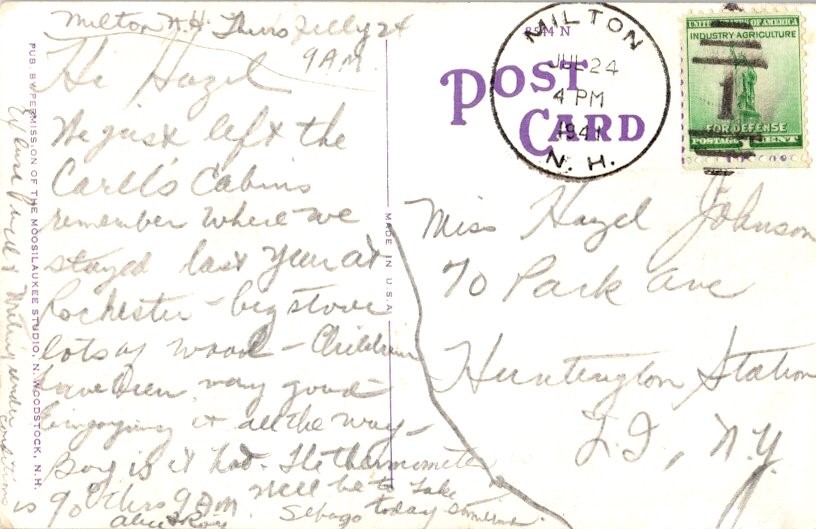 Milton N.H. Thurs July 24
9 AM.
Hi Hazel
We just left the
Carell's Cabins
remember where we
stayed last year at
Rochester - big stove
lots of wood - Children
have been very good
engoying it all the way -
Boy is it hot. The thermometer
is 90 this 9 AM. We'll be to Lake
Sebago today sometime.
Alice & Roy
under
conditions
PUB. BY PERMISSION OF THE MOOSILAUKEE STUDIO, N. WOODSTOCK, N.H.
MADE IN U.S.A.
POST
CARD
MILTON
JUL 24
4 PM
1941
N. H.
UNITED STATES OF AMERICA
INDUSTRY AGRICULTURE
1
FOR DEFENSE
POSTAGE 1 CENT
Miss Hazel Johnson
70 Park Ave
Huntington Station
L.I., N.Y.